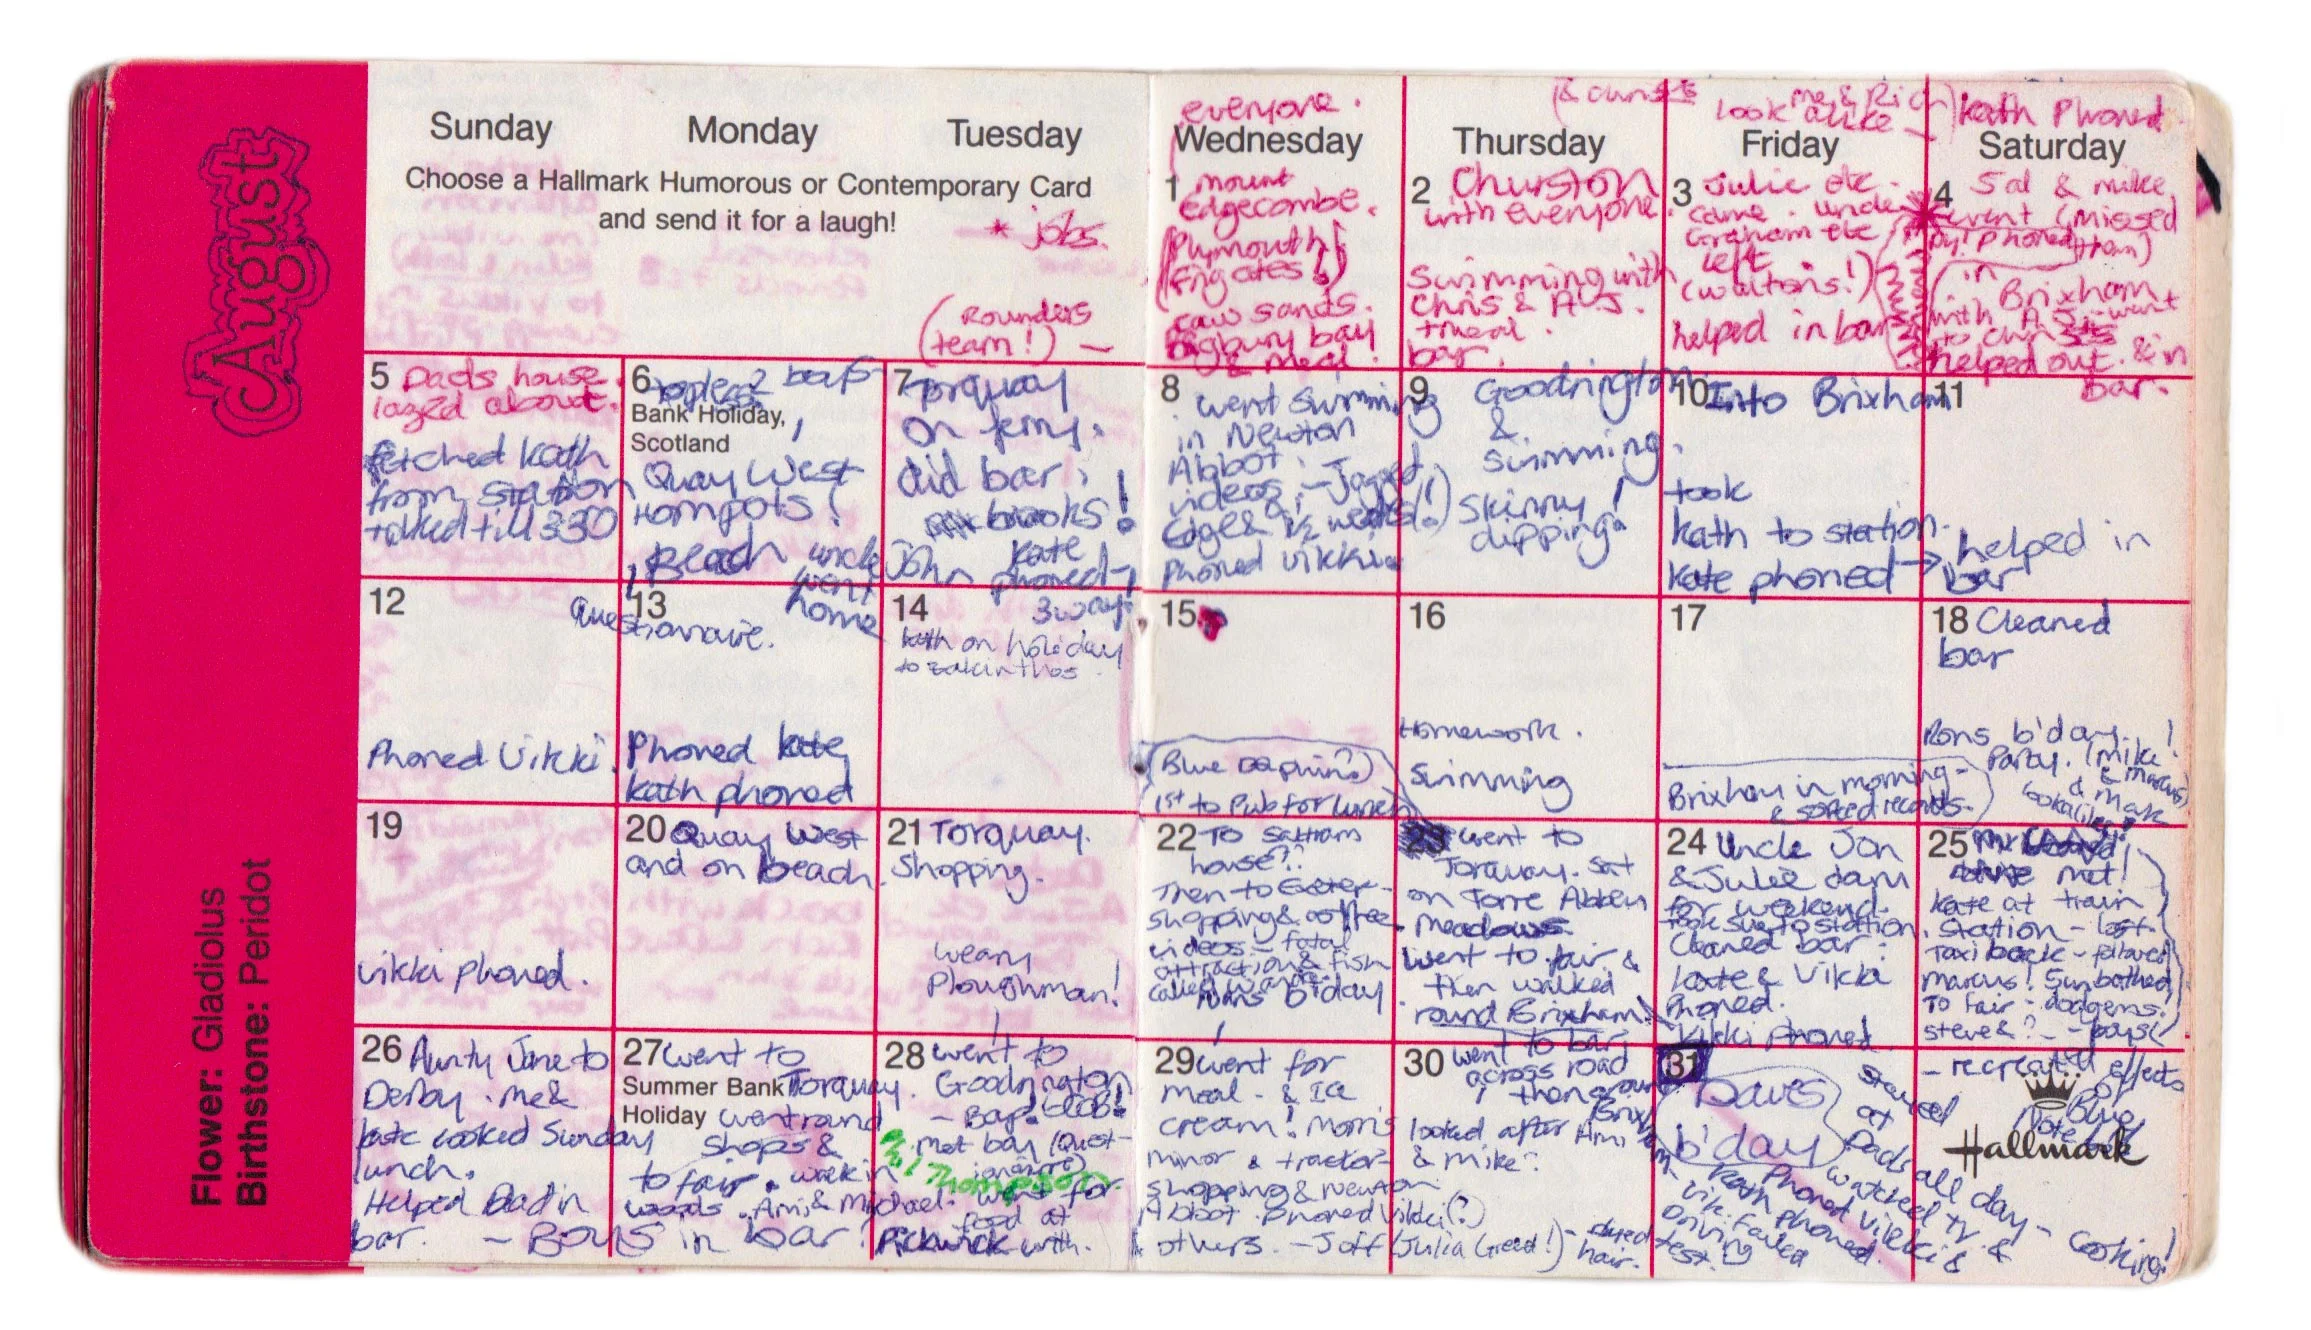 August
Flower: Gladiolus
Birthstone: Peridot
Sunday
Monday
Tuesday
Wednesday
Thursday
Friday
Saturday
Choose a Hallmark Humorous or Contemporary Card
and send it for a laugh!
* jobs.
(Rounders
team!) —
everyone.
1 Mount
Edgecombe.
(Plymouth!
Frigates!)
caw sands.
Bigbury bay
& meal.
(& Chris
2 Churston
with everyone.
Swimming with
Chris & A.J.
+ meal.
bar.
me & Rich
look alike —
3 Julie etc.
came. uncle
Graham etc
left.
(waltons!)
helped in bar
Kath Phoned.
4 Sal & mike
went (missed
by! Phoned them)
in
Brixham
with A.J. went
to Chris
helped out. & in
bar.
5 Dads house.
lazed about.
fetched kath
from station
talked till 3.30
6 topless 2 boys
Bank Holiday,
Scotland
Quay West
Hornpots!
Beach uncle
went
home
7 Torquay
on ferry.
did bar.
brooks!
John kate
phoned
8 went swimming
in Newton
Abbot.
videos - Jagged
Edge & 9 1/2 weeks!)
phoned vikki
9 Goodrington
&
swimming.
skinny!
dipping
10 Into Brixham
took
kath to station.
kate phoned →
11
helped in
bar
12
Phoned Vikki.
13
Questionaire.
Phoned kate
kath phoned
14 3 way!
kath on holiday
to zakinthos.
15
(Blue Dolphin?)
1st to Pub for lunch
16
Homework.
Swimming
17
Brixham in morning -
& sorted records.
18 Cleaned
bar
Rons b'day!
Party. (mike
& marcus)
& mark
lookalikes!
19
vikki phoned.
20 Quay West
and on beach.
21 Torquay.
Shopping.
weary
Ploughman!
22 To
house??
Then to Exeter -
shopping & coffee
videos - fatal
attraction & fish
called wanda
Rons b'day
23 went to
Torquay. sat
on Torre Abbey
meadows.
went to fair &
then walked
round Brixham.
24 Uncle Jon
& Julie down
for weekend.
took sue to station.
Cleaned bar.
Kate & Vikki
Phoned.
Vikki Phoned.
25
met!
kate at train
station - lost.
Taxi back - followed
marcus! Sunbathed
To fair - dodgems.
steve & ? - boys!
26 Aunty Jane to
Derby. me &
kate cooked Sunday
lunch.
Helped Dad in
bar.
27 went to
Summer Bank Torquay.
Holiday went round
shops &
to fair. walk in
woods. Ami & Michael.
- BOYS in bar?
28 went to
Goodrington
- Bap!
. met boy (Quest-
ionaire)
! Thompson
went for
food at
Pickwick with.
29 went for
meal - & Ice
cream! Morris
minor & tractor -
shopping & Newton
Abbot. phoned Vikki(?)
others. - Joff (Julia Greed!) -
30 went to bar
across road
then around
Brixham
looked after Ami
& mike?
dyed
hair.
31
Daves
b'day
Phoned Vikki &
Kath phoned.
vik failed
Driving
test.
stayed
at
Dads all day -
watched tv &
cooking!
- recreated effects
of
Blue
Note
Hallmark